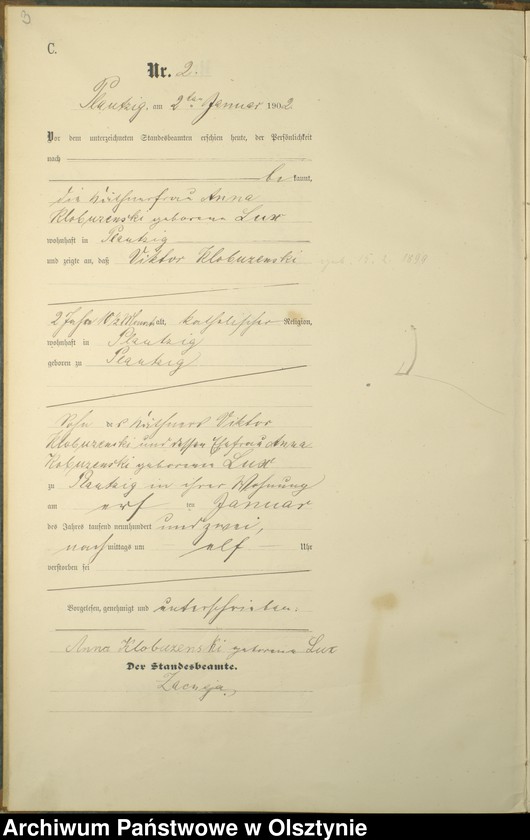 B
C.
Nr. 2.
Plautzig, am 2ten Januar 1902
Vor dem unterzeichneten Standesbeamten erschien heute, der Persönlichkeit
nach
be kannt,
die Käthnerfrau Anna
Klobuzenski geborene Lux
wohnhaft in Plautzig
und zeigte an, daß Viktor Klobuzenski
2 Jahre 10½ Monat alt, katholischer Religion,
wohnhaft in Plautzig
geboren zu Plautzig
Sohn des Käthners Viktor
Klobuzenski und dessen Ehefrau Anna
Klobuzenski geborene Lux
zu Plautzig in ihrer Wohnung
am ersten Januar
des Jahres tausend neunhundert und zwei,
nach mittags um elf Uhr
verstorben sei
Vorgelesen, genehmigt und unterschrieben.
Anna Klobuzenski geborene Lux
Der Standesbeamte.
Archiwum Państwowe w Olsztynie